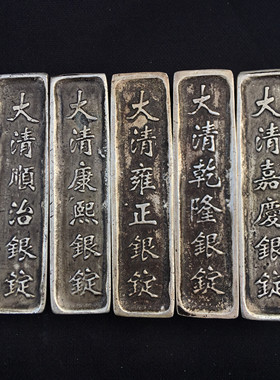 大清順治銀錠
大清康熙銀錠
大清雍正銀錠
大清乾隆銀錠
大清嘉慶銀錠